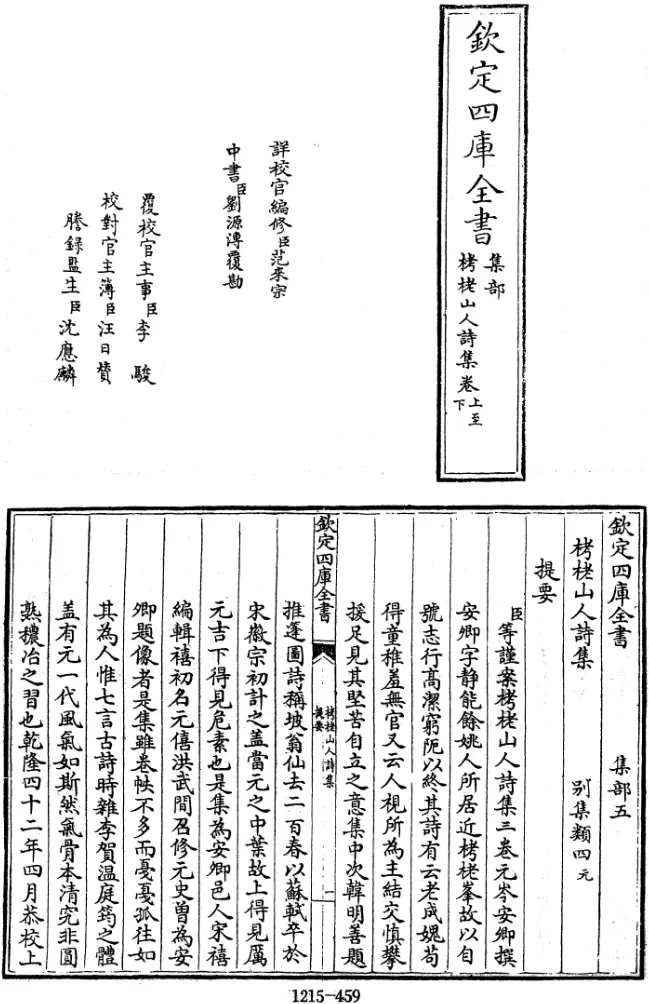 欽定四庫全書
集部
栲栳山人詩集卷上至下
詳校官編修臣范來宗
中書臣劉源溥覆勘
覆校官主事臣李駿
校對官主簿臣汪日贊
謄録監生臣沈應麟
欽定四庫全書 集部五
栲栳山人詩集 别集類四元
提要
臣等謹案栲栳山人詩集三卷元岑安卿撰
安卿字静能餘姚人所居近栲栳峯故以自
號志行高潔窮阨以終其詩有云老成媿苟
得童稚羞無官又云人視所為主結交慎攀
援足見其堅苦自立之意集中次韓明善題
欽定四庫全書
栲栳山人詩集
提要
一
推篷圖詩稱坡翁仙去二百春以蘇軾卒於
宋徽宗初計之盖當元之中葉故上得見厲
元吉下得見危素也是集為安卿邑人宋禧
編輯禧初名元僖洪武間召修元史曽為安
卿題像者是集雖卷帙不多而戛戛孤往如
其為人惟七言古詩時雜李賀温庭筠之體
盖有元一代風氣如斯然氣骨本清究非圓
熟穠冶之習也乾隆四十二年四月恭校上
1215-459